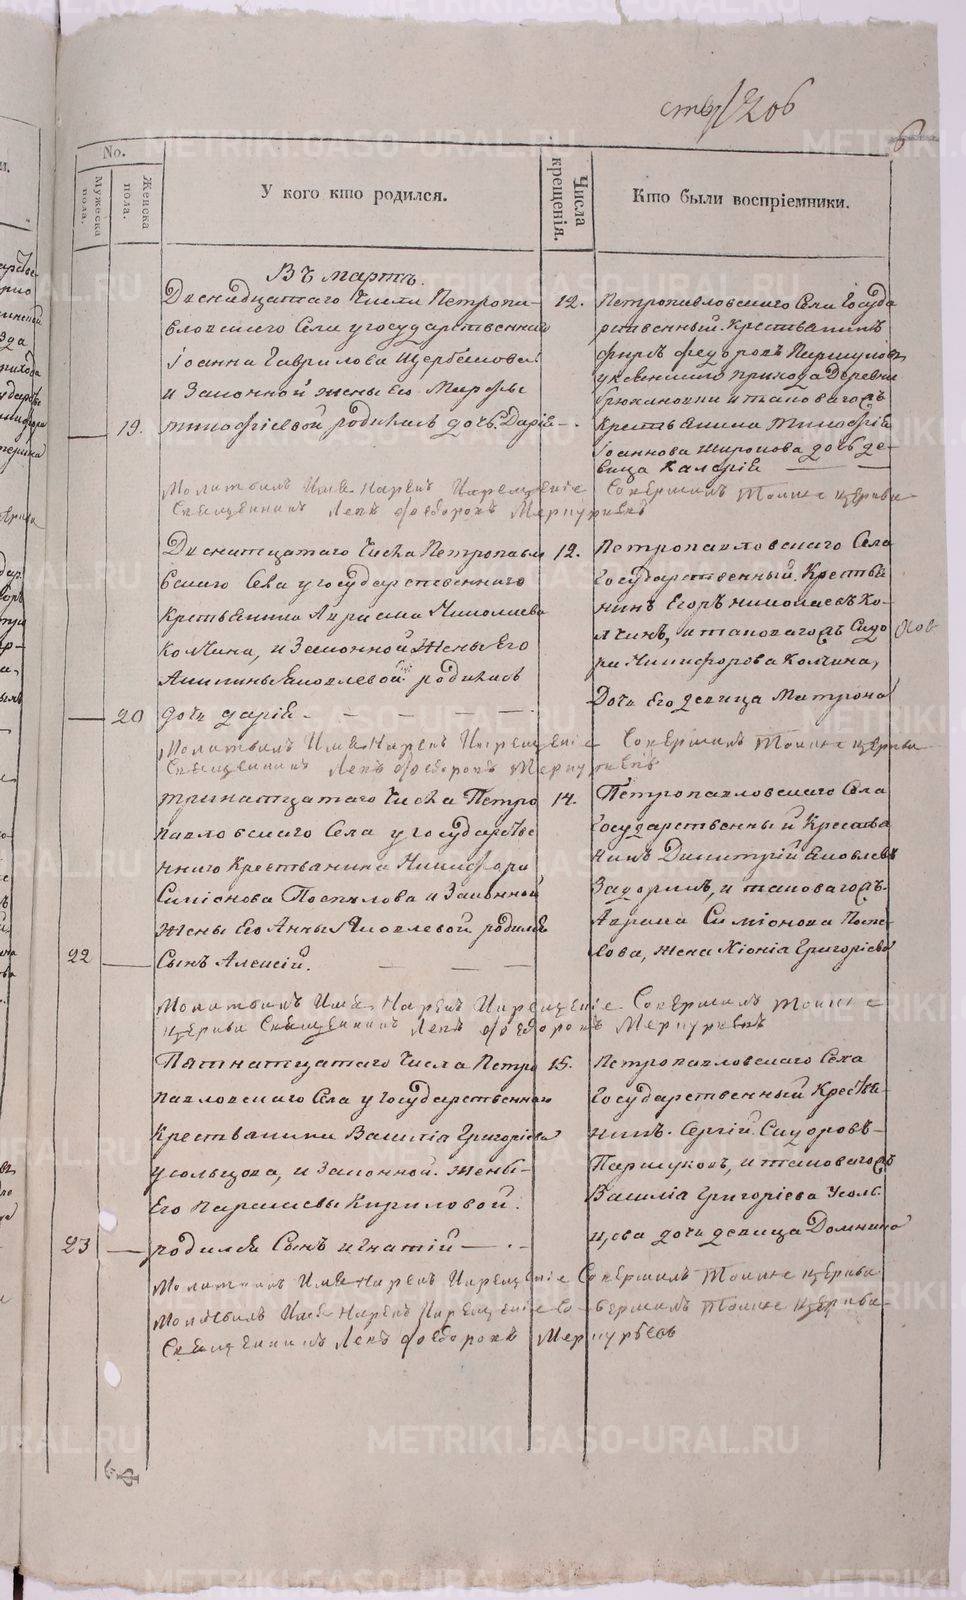 206
6
No.
Мужеска пола.
Женска пола.
У кого кто родился.
Числа крещенія.
Кто были воспріемники.
Въ мартѣ.
Двенадцатаго Числа Петропа-
вловскаго Села у государственнаго
Іоанна Гаврилова Щербакова
и Законной жены Его Марфы
19. Тимофіевой родилась дочь Дарія —
12. Петропавловскаго Села Госуда
рственный Крестьянинъ
Фирсъ Федоровъ Паршуковъ
прихода Деревни
и таковагожъ
Крестьянина Тимофія
Іоаннова Широкова дочь де-
вица Калерія — —
Молитвилъ Имя Нарекъ Икрещеніе Совершилъ Тоиже церкви
Священникъ Левъ Феодоровъ Меркурьевъ
Двенатцатаго Числа Петропавло
вскаго Села у государственнаго
Крестьянина Авраама Николаева
Колчина, и Законной Жены Его
Акилины Яковлевой родилась
20 дочь дарія — — — —
12. Петропавловскаго Села
Государственный Крестья
нинъ Егоръ Николаевъ Ко-
лчинъ, и таковагожъ Сидо
ра Никифорова Колчина,
Дочь Его девица Матрона
Молитвилъ Имя Нарекъ Икрещеніе Совершилъ Тоиже церкви
Священникъ Левъ Феодоровъ Меркурьевъ
Тринатцатаго Числа Петро
павловскаго Села у Государстве
ннаго Крестьянина Никифора
Симіонова Поспелова и Законной
Жены Его Анны Яковлевой родился
22 — Сынъ Алексій. — — —
14. Петропавловскаго Села
Государственный Крестья
нинъ Димитрій Яковлевъ
Задоринъ, и таковагожъ
Аврама Симіонова Поспе
лова, жена Хіонія Григоріева
Молитвилъ Имя Нарекъ Икрещеніе Совершилъ Тоиже
церкви Священникъ Левъ Феодоровъ Меркурьевъ
Пятнатцатаго Числа Петро
павловскаго Села у Государственнаго
Крестьянина Василія Григоріева
Усольцова, и Законной жены
Его Параскевы Кириловой.
23 — родился Сынъ игнатій — . —
15. Петропавловскаго Села
Государственный Крестья
нинъ Сергій Сидоровъ
Паршуковъ, и таковагожъ
Василіа Григоріева Усоль
цова дочь девица Домника
Молитвилъ Имя Нарекъ Икрещеніе Совершилъ Тоиже церкви
Молитвилъ Имя Нарекъ Икрещеніе Совершилъ Тоиже церкви
Священникъ Левъ Феодоровъ Меркурьевъ
METRIKI.GASO-URAL.RU